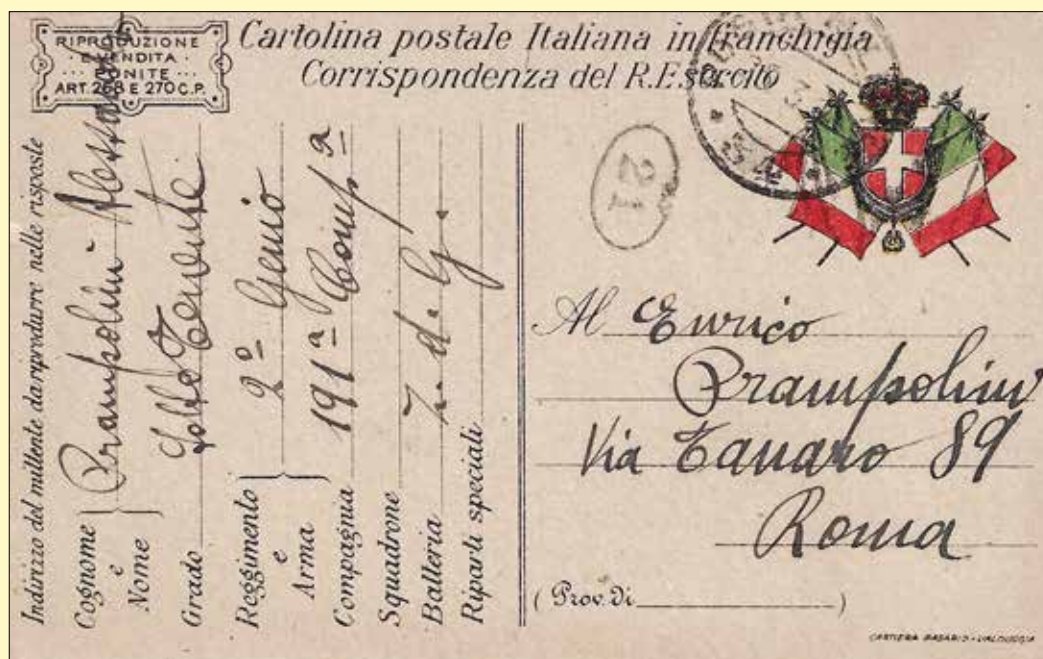 RIPRODUZIONE
E VENDITA
PUNITE
ART. 268 E 270 C.P.
Cartolina postale Italiana in franchigia
Corrispondenza del R. Esercito
Indirizzo del mittente da riprodurre nelle risposte
Cognome e Nome Prampolini
Grado Sotto Tenente
Reggimento e Arma 2º Genio
Compagnia 191ª Comp.ª
Squadrone
Batteria Z. d. G.
Riparti speciali
21
Al Enrico
Prampolini
Via Tanaro 89
Roma
(Prov. di )